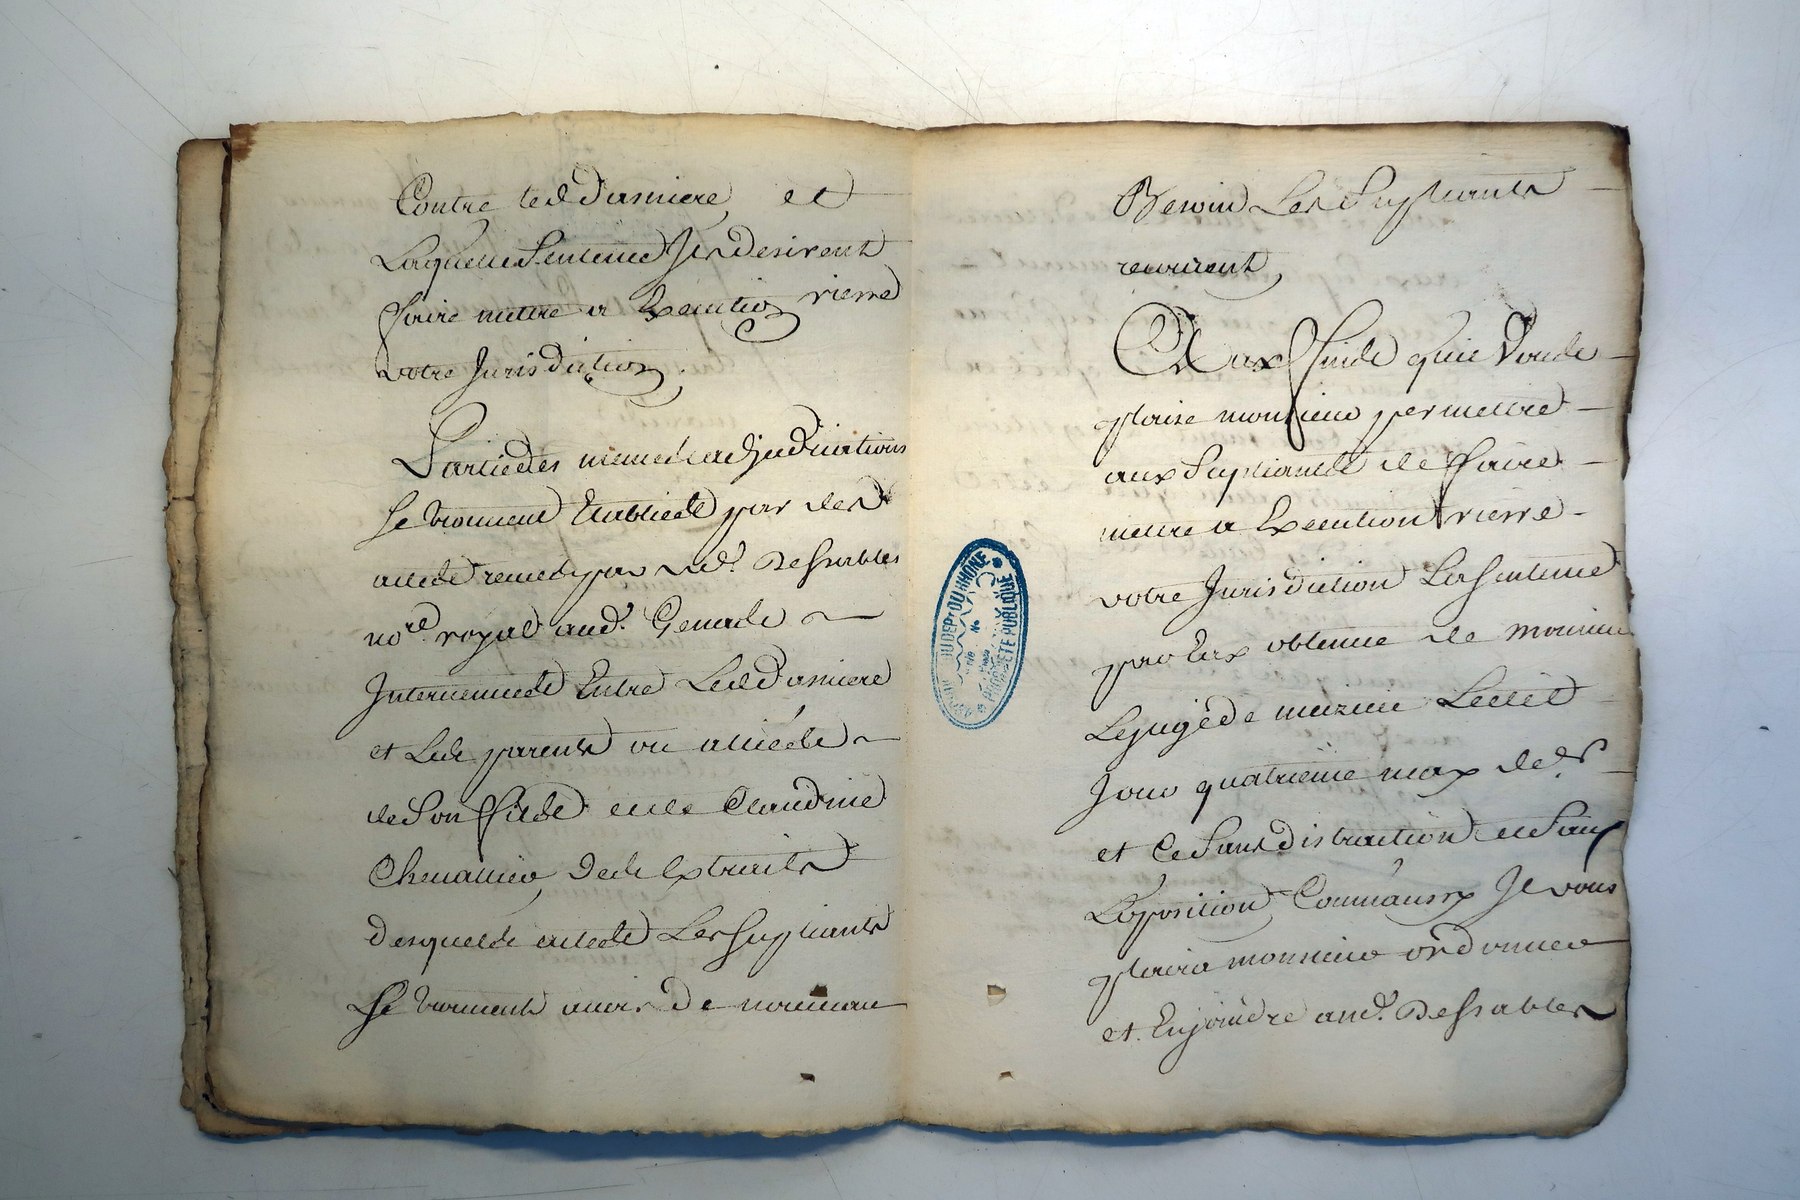 Contre led. Darniere et
Laquelle Sentence Ils desirent
faire mettre a Execution rierre
votre Jurisdiction,
Partie des memes adjudications
se trouvent Etablies par des
actes reçus par Me. DesSables
nore. royal aud. Genade
Intervenus Entre Led. Darniere
et Les parents ou alliés de
de Son fils et de Claudine
Chevallier, des Extraits
desquels actes Les Supliants
Se trouvent avoir de nouveau
Besoin Les Supliants
recourent,
Aux fins quil Vous
plaise monsieur permettre
aux Supliants de faire
mettre a Execution rierre
votre Jurisdiction La Sentence
par Eux obtenue de monsieur
Le juge de Led.
Jour quatrieme may der.
et Ce Sans distraction et Sauf
L'oposition, Comm'aussy Il vous
plaira monsieur ordonner
et Enjoindre aud. DesSables
DU DEPT DU RHÔNE
PROPRIÉTÉ PUBLIQUE